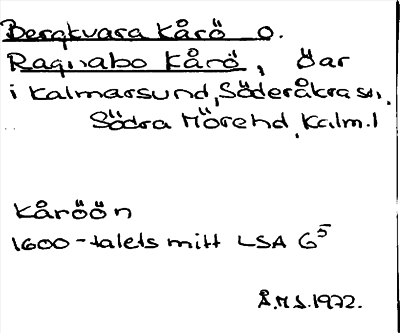 Bergkvara Kårö o.
Ragnabo Kårö, öar
i Kalmarsund, Söderåkra sn,
Södra Möre hd, Kalm. l
Kåröön
1600-talets mitt LSA G5
Å.M.S. 1972.